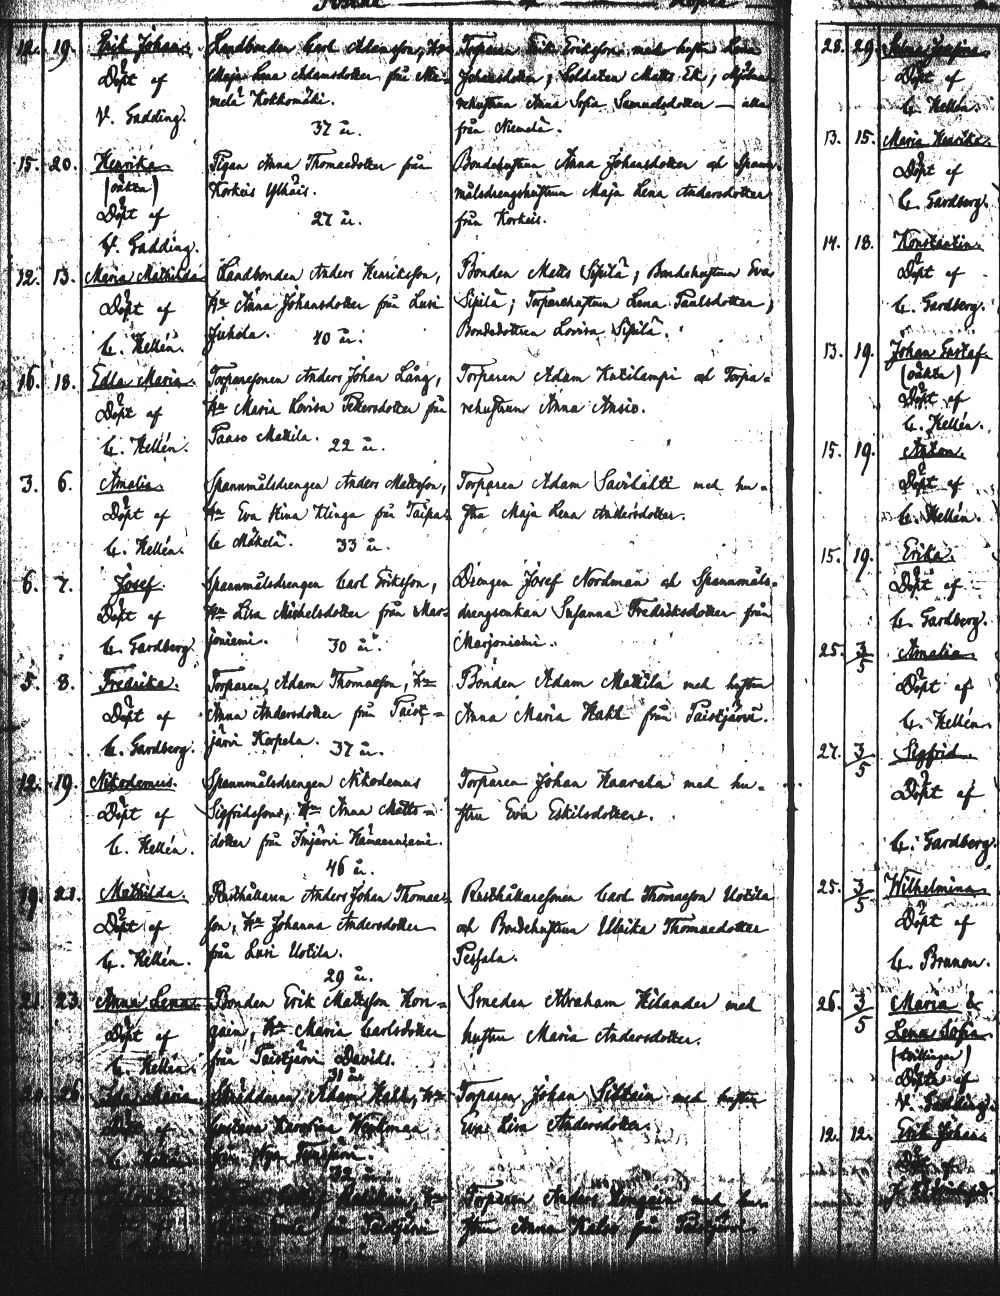 12. 19. Erik Johan. Landbonden Carl Adamsson, Hu Torparen Erik Eriksson med hustru Lena
Döpt af Maja Lena Adamsdotter från Nie- Johansdotter; Soldaten Matts Ek; Mjölna-
V. Gadding. melä Kokkomäki. rehustrun Anna Sofia Samuelsdotter — alla
37 år. från Niemelä.
15. 20. Henrika Pigan Anna Thomaedotter från Bondehustrun Anna Johansdotter och Spann-
(oäkta) Korkeis Ylhäis. målsdrengshustrun Maja Lena Andersdotter
Döpt af 27 år. från Korkeis.
V. Gadding.
12. 13. Maria Mathilda Landbonden Anders Henriksson, Bonden Matts Sipilä; Bondehustrun Eva
Döpt af Hu Anna Johansdotter från Lusi Sipilä; Torparehustrun Lena Paulsdotter;
C. Hellén. Juhola. 40 år. Bondedottren Lovisa Sipilä.
16. 18. Edla Maria. Torparesonen Anders Johan Lång, Torparen Adam Kutilampi och Torpa-
Döpt af Hu Maria Lovisa Pettersdotter från rehustrun Anna Ansio.
C. Hellén. Paaso Mattila. 22 år.
3. 6. Amalia. Spannmålsdrengen Anders Mattsson, Torparen Adam Savilahti med hu-
Döpt af Hu Eva Stina Klinga från Taipa- stru Maja Lena Andersdotter.
C. Hellén. le Mäkelä. 33 år.
6. 7. Josef. Spannmålsdrengen Carl Eriksson, Drengen Josef Nordman och Spannmåls-
Döpt af Hu Lisa Michelsdotter från Mar- drengsenkan Susanna Fredriksdotter från
C. Gardberg. joniemi. 30 år. Marjoniemi.
5. 8. Fredrika. Torparen, Adam Thomasson, Hu Bonden Adam Mattila med hustru
Döpt af Anna Andersdotter från Paist- Anna Maria Hahl från Paistjärvi.
C. Gardberg. järvi Korpela. 37 år.
12. 19. Nikodemus. Spannmålsdrengen Nikodemus Torparen Johan Haavala med hu-
Döpt af Sigfridsson, Hu Anna Matts- stru Eva Eskilsdotter.
C. Hellén. dotter från Imjärvi Hämeenniemi.
46 år.
19. 21. Mathilda. Rusthållaren Anders Johan Thomae- Rusthållaresonen Carl Thomasson Uotila
Döpt af son, Hu Johanna Andersdotter och Bondehustrun Ulrika Thomaedotter
C. Hellén. från Lusi Uotila. Pessala.
29 år.
21. 23. Anna Lena Bonden Erik Mattsson Hon- Smeden Abraham Kilander med
Döpt af gain, Hu Maria Carlsdotter hustru Maria Andersdotter.
C. Hellén. från Paistjärvi Davils.
31 år.
26. Ida Maria. Skräddaren, Adam Hahl, Hu Torparen Johan Siltain med hustru
Döpt af Gustava Karolina Eva Lisa Andersdotter.
C. Hellén. från
32 år.
Torparen Anders Hongain med hu-
Döpt af från Paistjärvi stru Anna från Paistjärvi.
28. 29. Selma Josefina.
Döpt af
C. Hellén.
13. 15. Maria Henrika.
Döpt af
C. Gardberg.
14. 18. Konstantin.
Döpt af
C. Gardberg.
13. 19. Johan Gustaf.
(oäkta)
Döpt af
C. Hellén.
15. 19. Anton.
Döpt af
C. Hellén.
15. 19. Erika.
Döpt af
C. Gardberg.
25. 3/5 Amalia.
Döpt af
C. Hellén.
27. 3/5 Sigfrid.
Döpt af
C. Gardberg.
25. 3/5 Wilhelmina.
Döpt af
C. Brunou.
26. 3/5 Maria &
Lena Sofia
(tvillingar)
Döpta af
V. Gadding.
12. 12. Erik Johan.
Döpt af